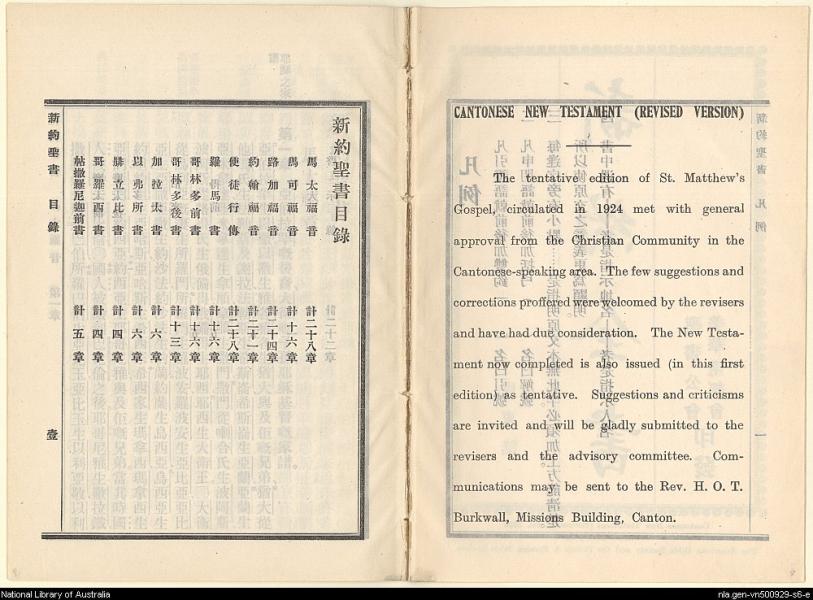 新約聖書目錄
馬太福音 計二十八章
馬可福音 計十六章
路加福音 計二十四章
約翰福音 計二十一章
使徒行傳 計二十八章
羅馬書 計十六章
哥林多前書 計十六章
哥林多後書 計十三章
加拉太書 計六章
以弗所書 計六章
腓立比書 計四章
哥羅西書 計四章
帖撒羅尼迦前書 計五章
新約聖書 目錄 壹
CANTONESE NEW TESTAMENT (REVISED VERSION)
The tentative edition of St. Matthew's
Gospel, circulated in 1924 met with general
approval from the Christian Community in the
Cantonese-speaking area. The few suggestions and
corrections proffered were welcomed by the revisers
and have had due consideration. The New Testa-
ment now completed is also issued (in this first
edition) as tentative. Suggestions and criticisms
are invited and will be gladly submitted to the
revisers and the advisory committee. Com-
munications may be sent to the Rev. H. O. T.
Burkwall, Missions Building, Canton.
National Library of Australia
nla.gen-vn500929-s6-e